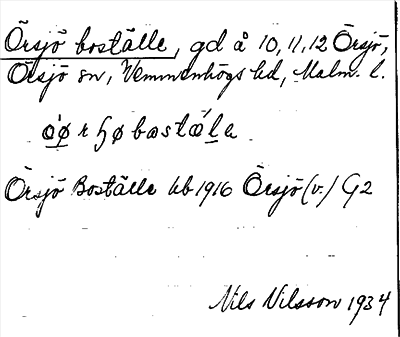 Örsjö boställe, gd å 10, 11, 12 Örsjö,
Örsjö sn, Vemmenhögs hd, Malm. l.
Örsjö Boställe hb 1916 Örsjö (v.) G2
Nils Nilsson 1934